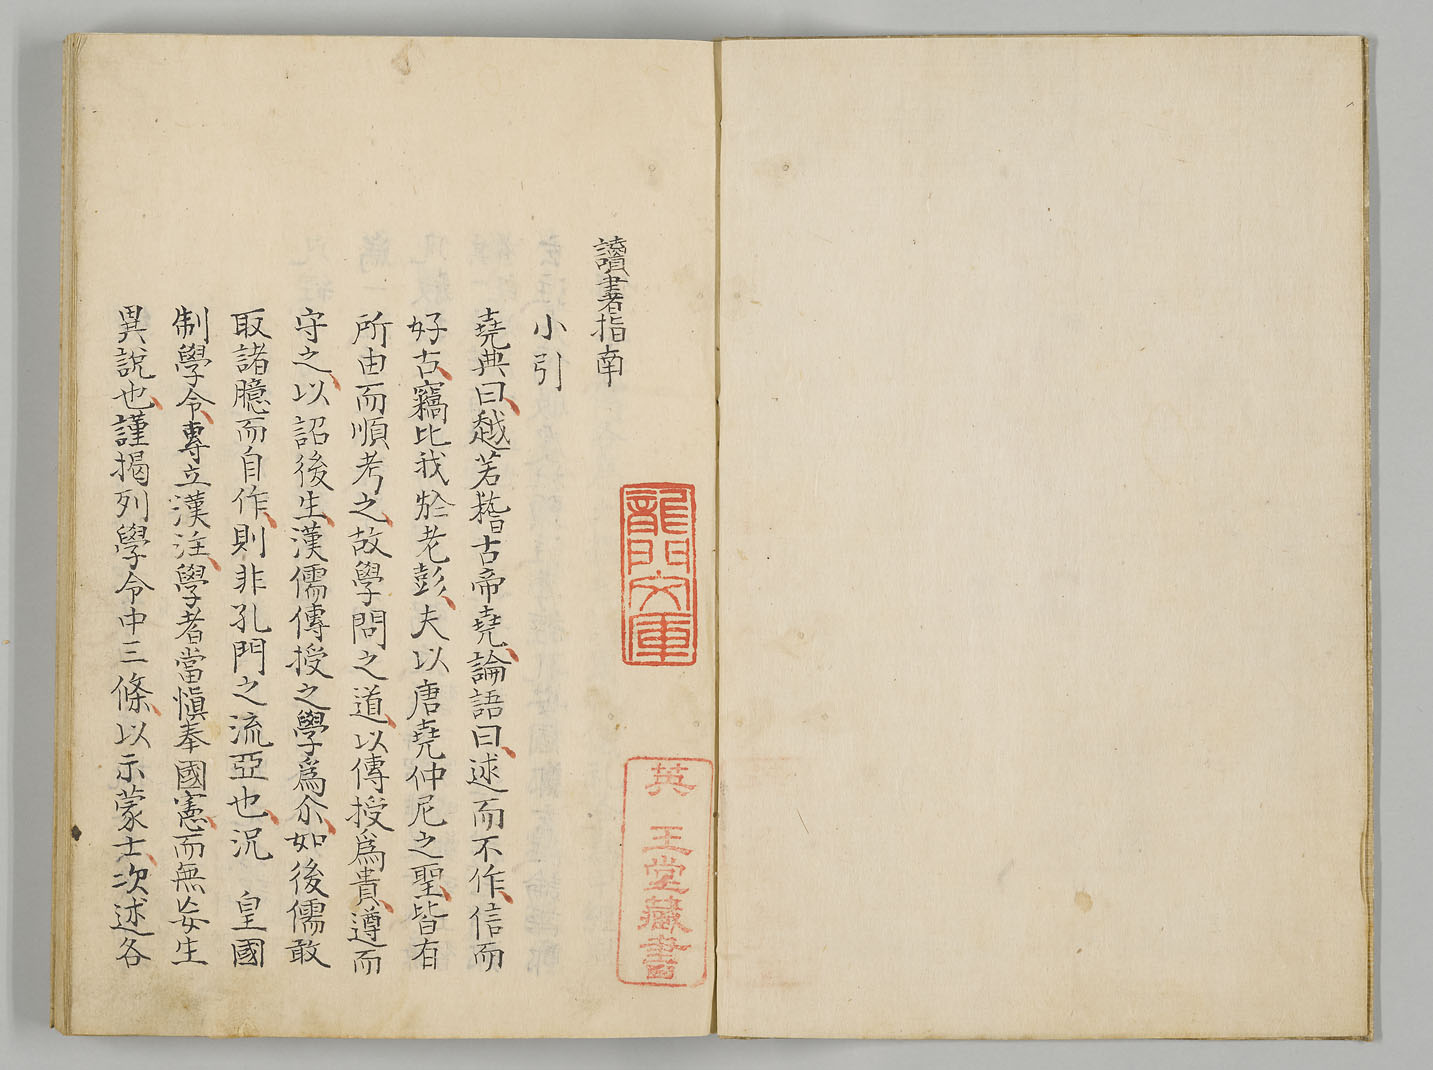 讀書指南
小引
堯典曰越若稽古帝堯論語曰述而不作信而
好古竊比我於老彭夫以唐堯仲尼之聖皆有
所由而順考之故學問之道以傳授爲貴遵而
守之以詔後生漢儒傳授之學爲尒如後儒敢
取諸臆而自作則非孔門之流亞也況 皇國
制學令專立漢注學者當愼奉國憲而無妄生
異說也謹揭列學令中三條以示蒙士次述各
龍門文庫
英 王堂藏書